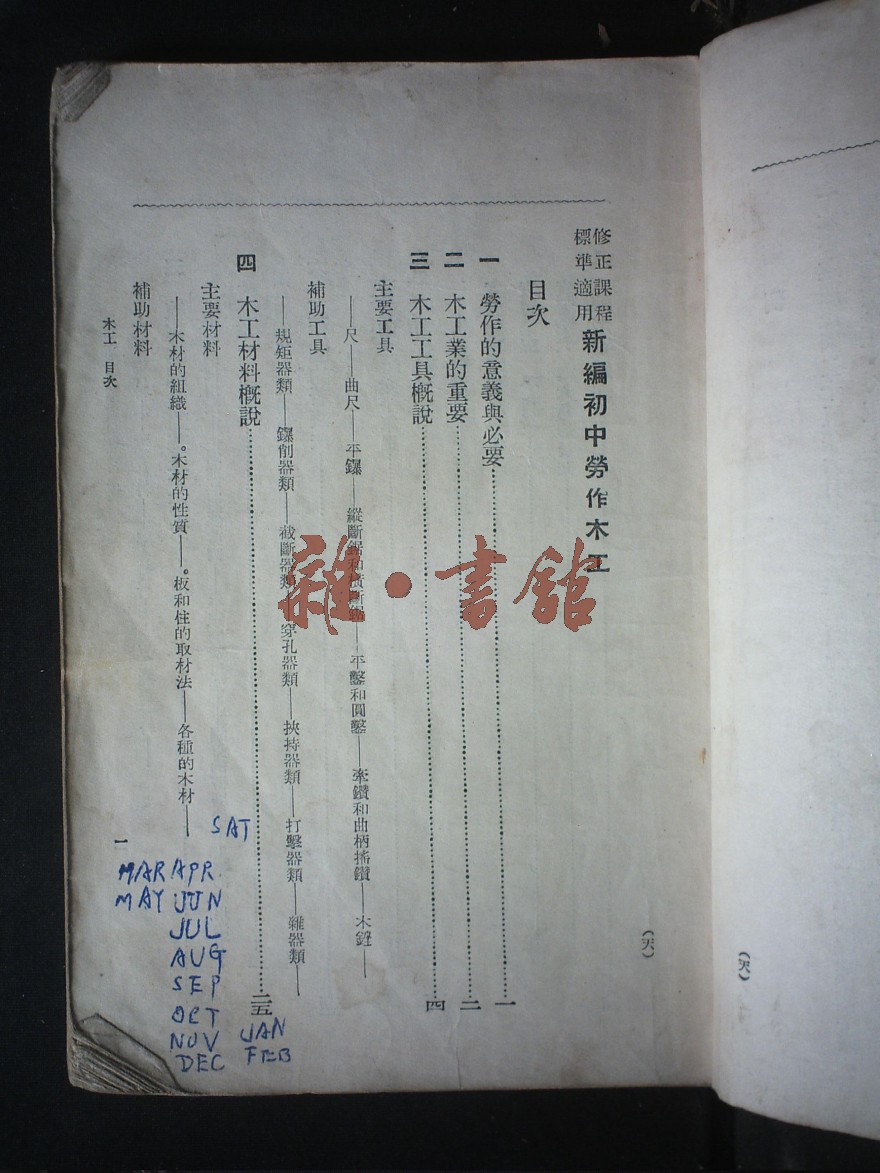 修正課程
標準適用
新編初中勞作木工
目次
一 勞作的意義與必要……一
二 木工業的重要……二
三 木工工具概說……四
主要工具
——尺——曲尺——平鑤——縱斷鋸和橫斷鋸——平鑿和圓鑿——牽鑽和曲柄搖鑽——木銼——
補助工具
——規矩器類——鑤削器類——截斷器類——穿孔器類——挾持器類——打擊器類——雜器類——
四 木工材料概說……二五
主要材料
——木材的組織——。木材的性質——。板和住的取材法——各種的木材——
補助材料
木工 目次
一
雜·書館
SAT
MAR APR
MAY JUN
JUL
AUG
SEP
OCT
NOV JAN
DEC FEB